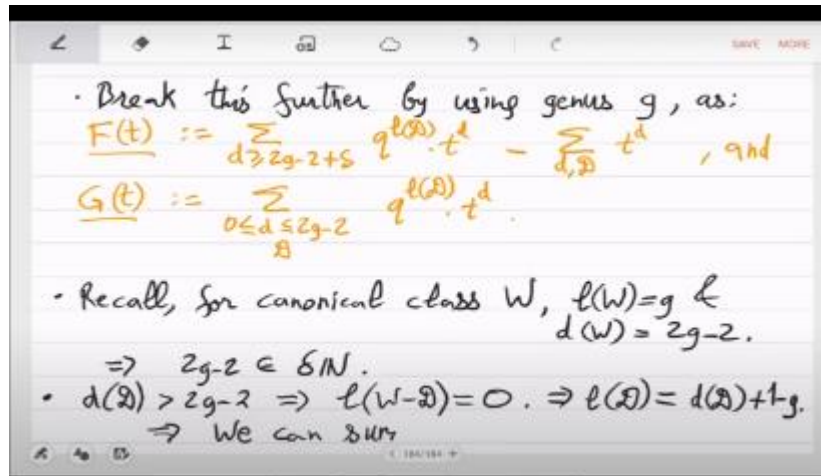 SAVE MORE
· Break this further by using genus g, as:
F(t) := ∑_{d≥2g-2+δ} q^{l(𝔇)}·t^d - ∑_{d,𝔇} t^d , and
G(t) := ∑_{0≤d≤2g-2, 𝔇} q^{l(𝔇)}·t^d .
· Recall, for canonical class W, l(W)=g &
d(W) = 2g-2.
=> 2g-2 ∈ δℕ.
· d(𝔇) > 2g-2 => l(W-𝔇)=0. ⇒ l(𝔇) = d(𝔇)+1-g.
⇒ We can sum
184/184